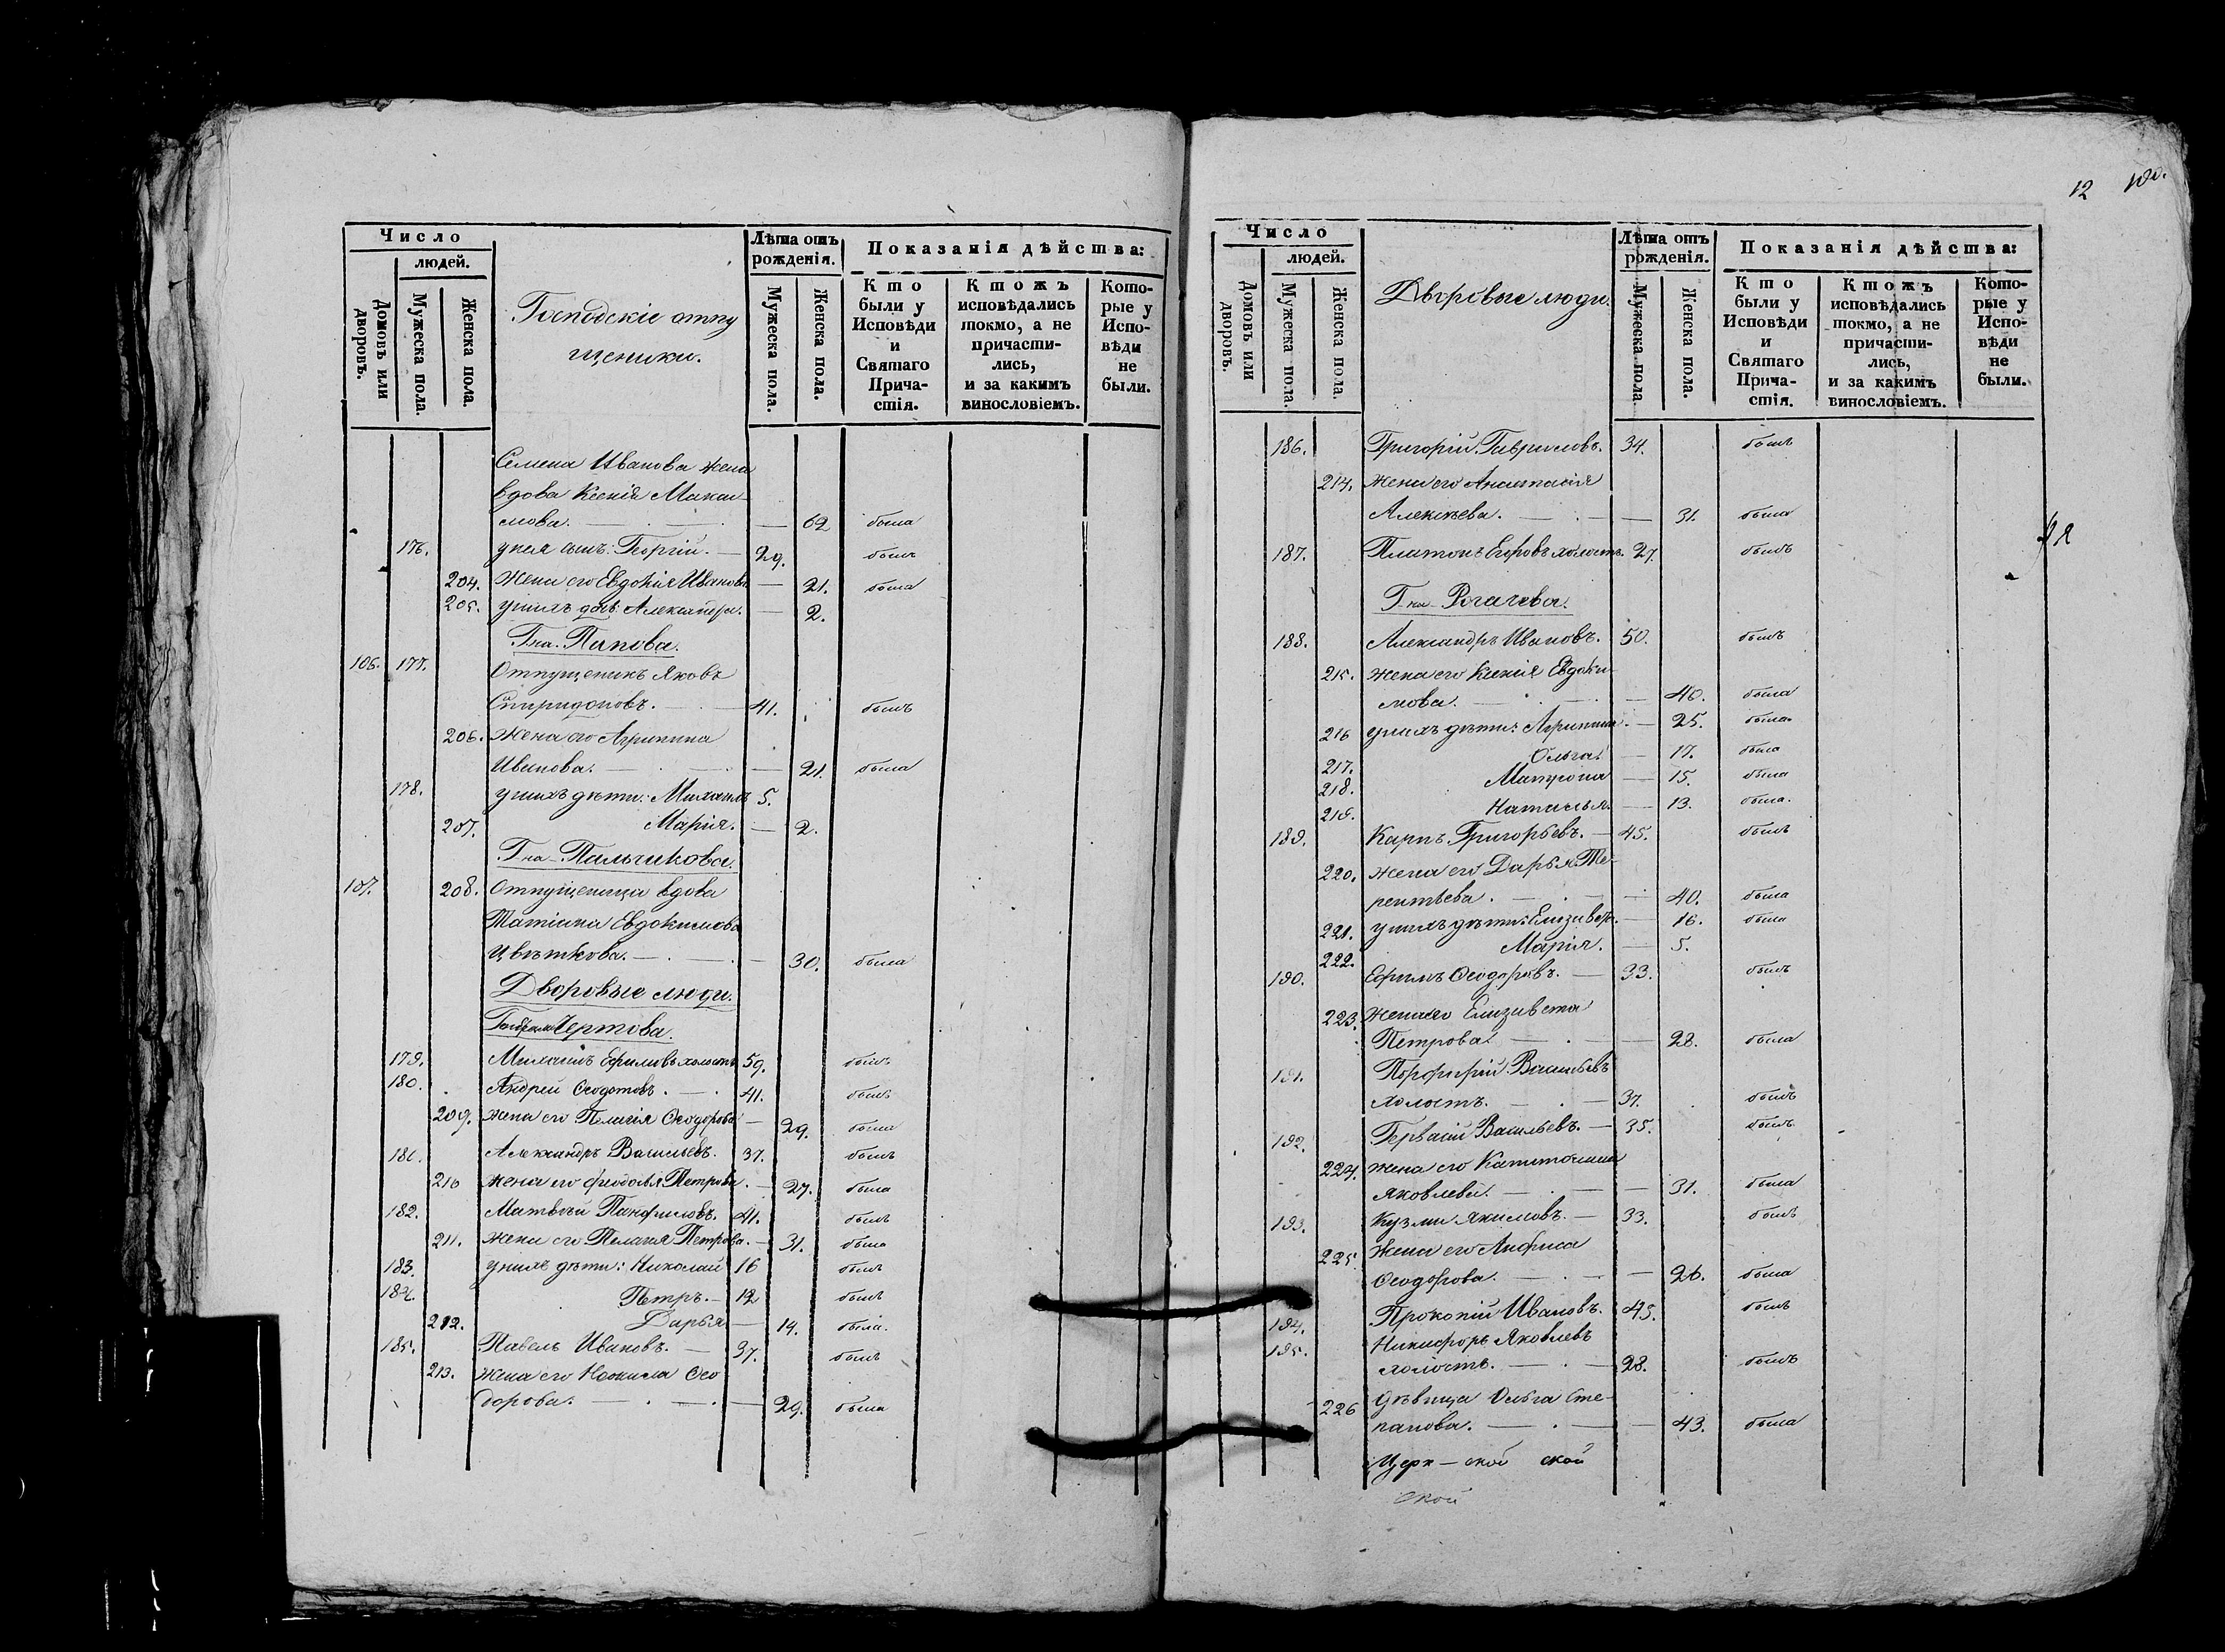 Число
людей.
Домовъ или дворовъ.
Мужеска пола.
Женска пола.
Господскіе отпу
щеники.
Лѣта отъ рожденія.
Мужеска пола.
Женска пола.
Показанія дѣйства:
Кто были у Исповѣди и Святаго Причастія.
Ктожъ исповѣдались токмо, а не причастились, и за какимъ винословіемъ.
Которые у Исповѣди не были.
Семена Иванова жена
вдова Ксенія Макси
мова. — 62 была
176. унея сынъ: Георгій. — 29. былъ
204. Жена его Евдокія Иванова — 21. была
205. унихъ дочь: Александра. — 2.
Гна. Попова.
106. 177. Отпущеникъ Яковъ
Спиридоновъ. — 41. былъ
206. Жена его Агрипина
Иванова. — 21. была
178. унихъ дѣти: Михаилъ 5.
207. Марія. — 2.
Гна. Пальчикова.
107. 208. Отпущеница вдова
Татіана Евдокимова
Цвѣткова. — 30. была
Дворовые люди.
Чертова.
179. Михаилъ Ефимовъ холостъ 59. былъ
180. Андрей Ѳеодотовъ. — 41. былъ
209. жена его Пелагія Ѳеодорова — 29. была
181. Александръ Васильевъ. 37. былъ
210 жена его Феодосья Петрова. — 27. была
182. Матвѣй Панфиловъ. 41. былъ
211. жена его Пелагія Петрова. — 31. была
183. унихъ дѣти: Николай 16 былъ
184. Петръ. — 12 былъ
212. Дарья — 14. была.
185. Павелъ Ивановъ. — 37. былъ
213. жена его Неонила Ѳео
дорова. — 29. была
12
Число
людей.
Домовъ или дворовъ.
Мужеска пола.
Женска пола.
Дворовые люди.
Лѣта отъ рожденія.
Мужеска пола.
Женска пола.
Показанія дѣйства:
Кто были у Исповѣди и Святаго Причастія.
Ктожъ исповѣдались токмо, а не причастились, и за какимъ винословіемъ.
Которые у Исповѣди не были.
186. Григорій Гавриловъ. 34. былъ
214. жена его Анастасія
Алексѣева. — 31. была
187. Платонъ Егоровъ холостъ. 27. былъ
Гна Рогачева.
188. Александръ Ивановъ. 50. былъ
215. жена его Ксенія Евдоки
мова. — 40. была
216 унихъ дѣти: Агрипина — 25. была.
217. Ольга. — 17. была
218. Матрона — 15. была
219. Наталья. — 13. была.
189. Карпъ Григорьевъ. — 45. былъ
220. жена его Дарья Те-
рентьева. — 40. была
221. унихъ дѣти: Елизавета. — 16. была
222. Марія. — 5.
190. Ефимъ Ѳеодоровъ. — 33. былъ
223. Жена его Елизавета
Петрова. — 28. была
191. Порфирій Васильевъ
холостъ. — 37. былъ
192. Гервасій Васильевъ. — 35. былъ
224. жена его Капитолина
Яковлева. — 31. была
193. Кузма Якимовъ. — 33. былъ
225. Жена его Анфиса
Ѳеодорова. — 26. была
194. Прокопій Ивановъ. 45. былъ
195. Никифоръ Яковлевъ
холостъ. — 28. былъ
226 Дѣвица Ольга Сте-
панова. — 43. была
Церк — ской ской
ской